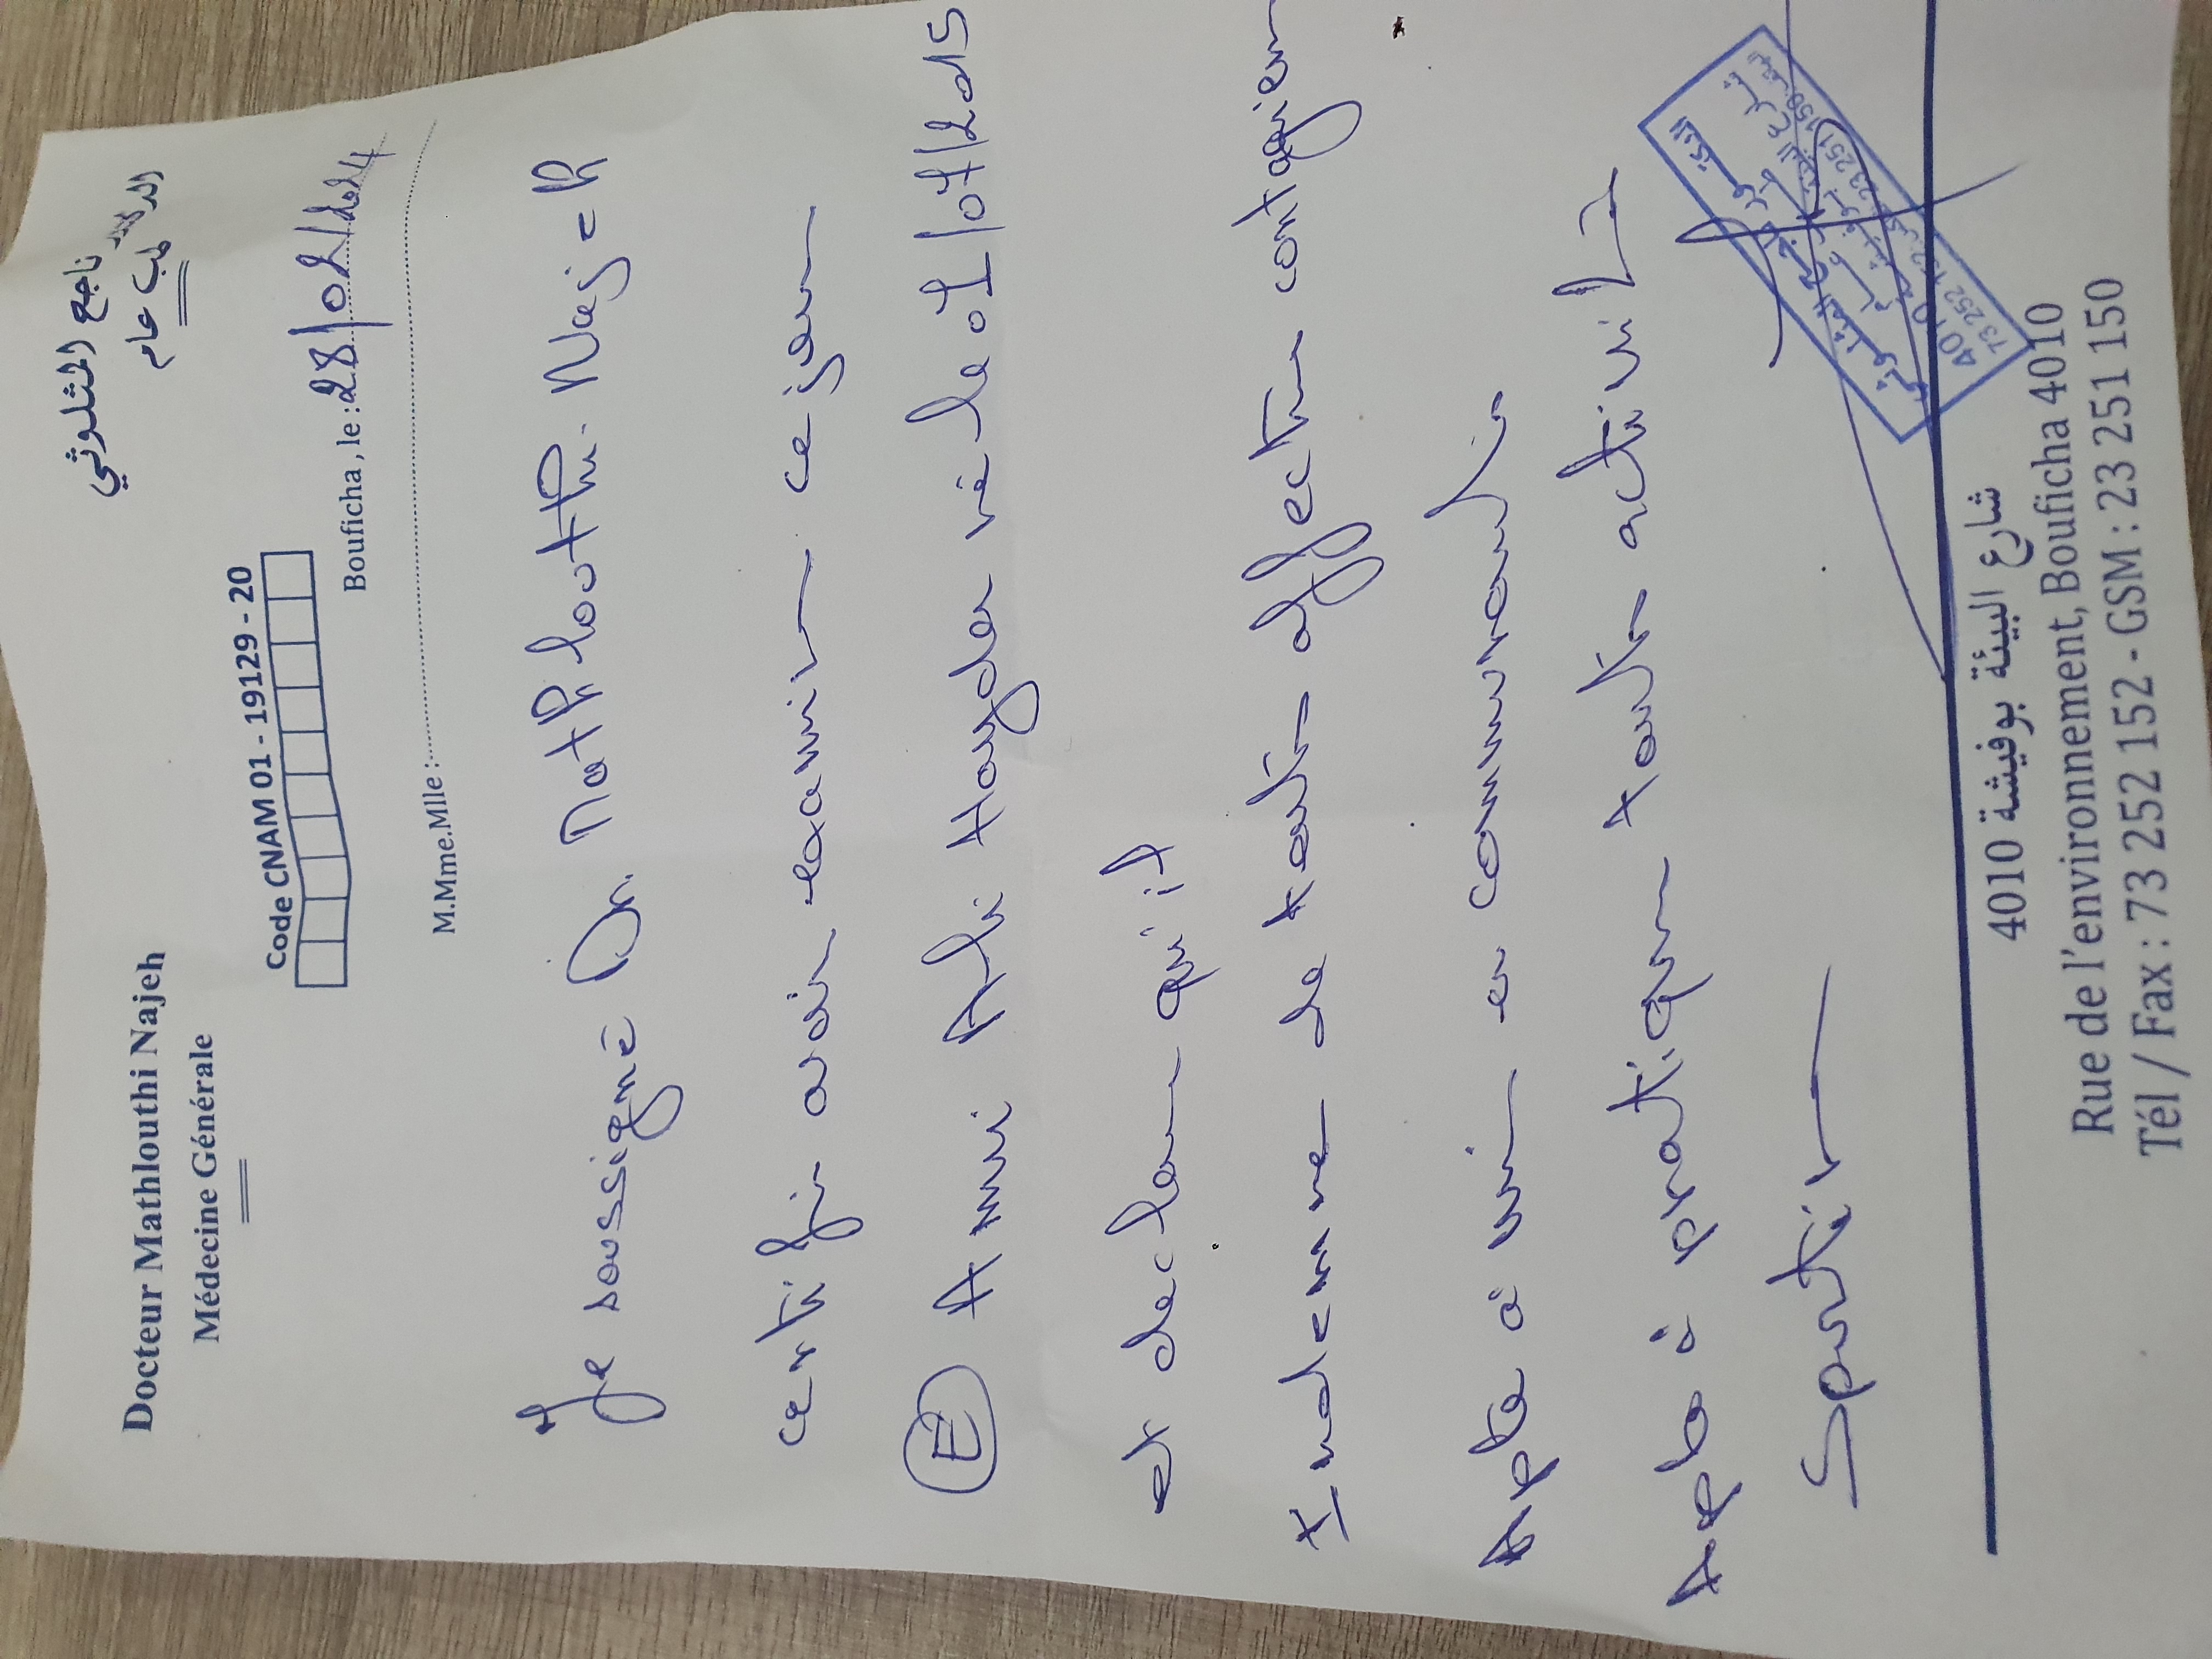 Docteur Mathlouthi Najeh
Médecine Générale
الدكتور ناجح المثلوثي
طب عام
Code CNAM 01 - 19129 - 20
Bouficha, le : 28/02/2024
M.Mme.Mlle :
Je soussigné Dr. Mathlouthi Najeh
certifie avoir examiner ce jour
E Amri Ali Hayder né le 01/07/2015
et declare qu'il
Indemne de toute affection contagieuse
Apte à vivre en communauté
Apte à pratiquer toute activité
Sportive
شارع البيئة بوفيشة 4010
Rue de l'environnement, Bouficha 4010
Tél / Fax : 73 252 152 - GSM : 23 251 150